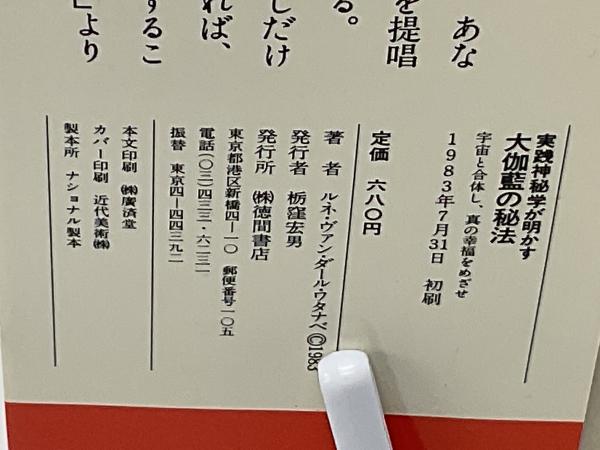 あな
を提唱
る。
しだけ
れば、
するこ
より
実践神秘学が明かす
大伽藍の秘法
宇宙と合体し、真の幸福をめざせ
1983年7月31日 初刷
定価 六八〇円
著者 ルネ・ヴァン・ダール・ワタナベ©1983
発行者 栃窪宏男
発行所 ㈱徳間書店
東京都港区新橋四―一〇 郵便番号一〇五
電話(〇三)四三三・六二三一
振替 東京四―四四三九二
本文印刷 ㈱廣済堂
カバー印刷 近代美術㈱
製本所 ナショナル製本